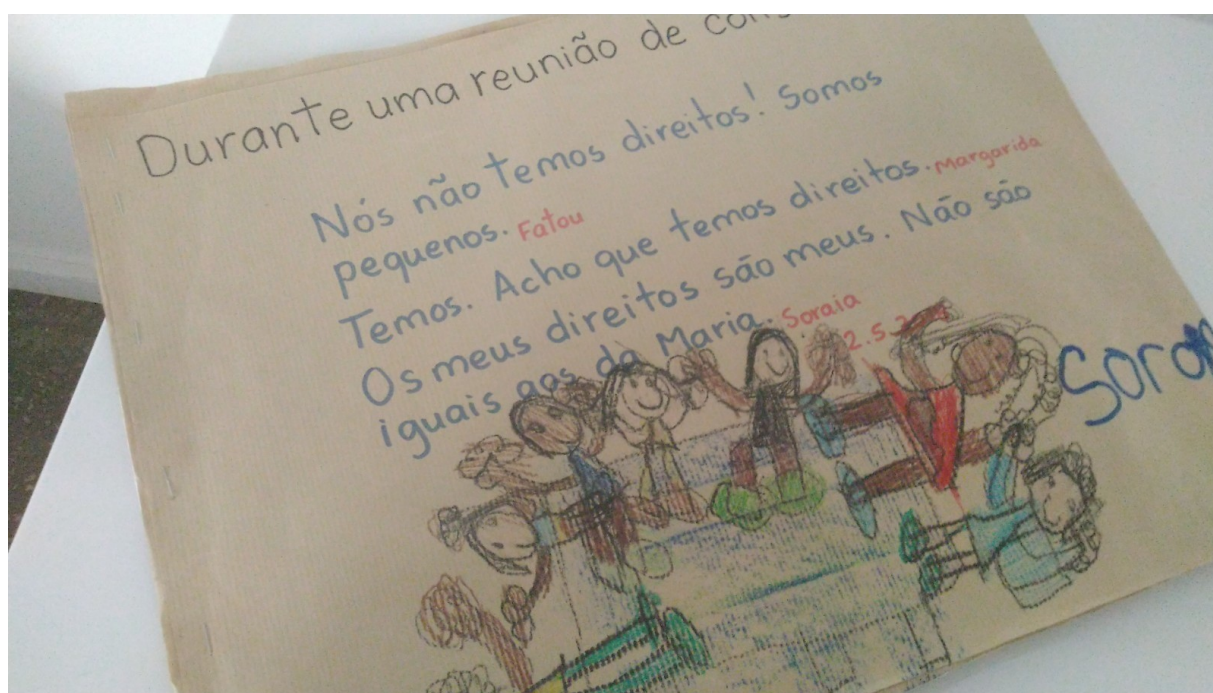 Durante uma reunião de
Nós não temos direitos! Somos
pequenos. Fatou
Temos. Acho que temos direitos. Margarida
Os meus direitos são meus. Não são
iguais aos da Maria. Soraia